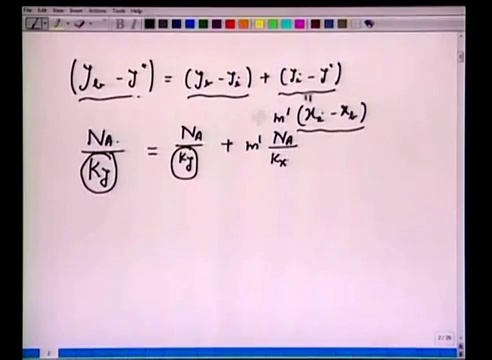 File Edit View Insert Actions Tools Help
(y_b - y*) = (y_b - y_i) + (y_i - y*)
"
m' (x_i - x_b)
N_A / K_y = N_A / k_y + m' N_A / k_x